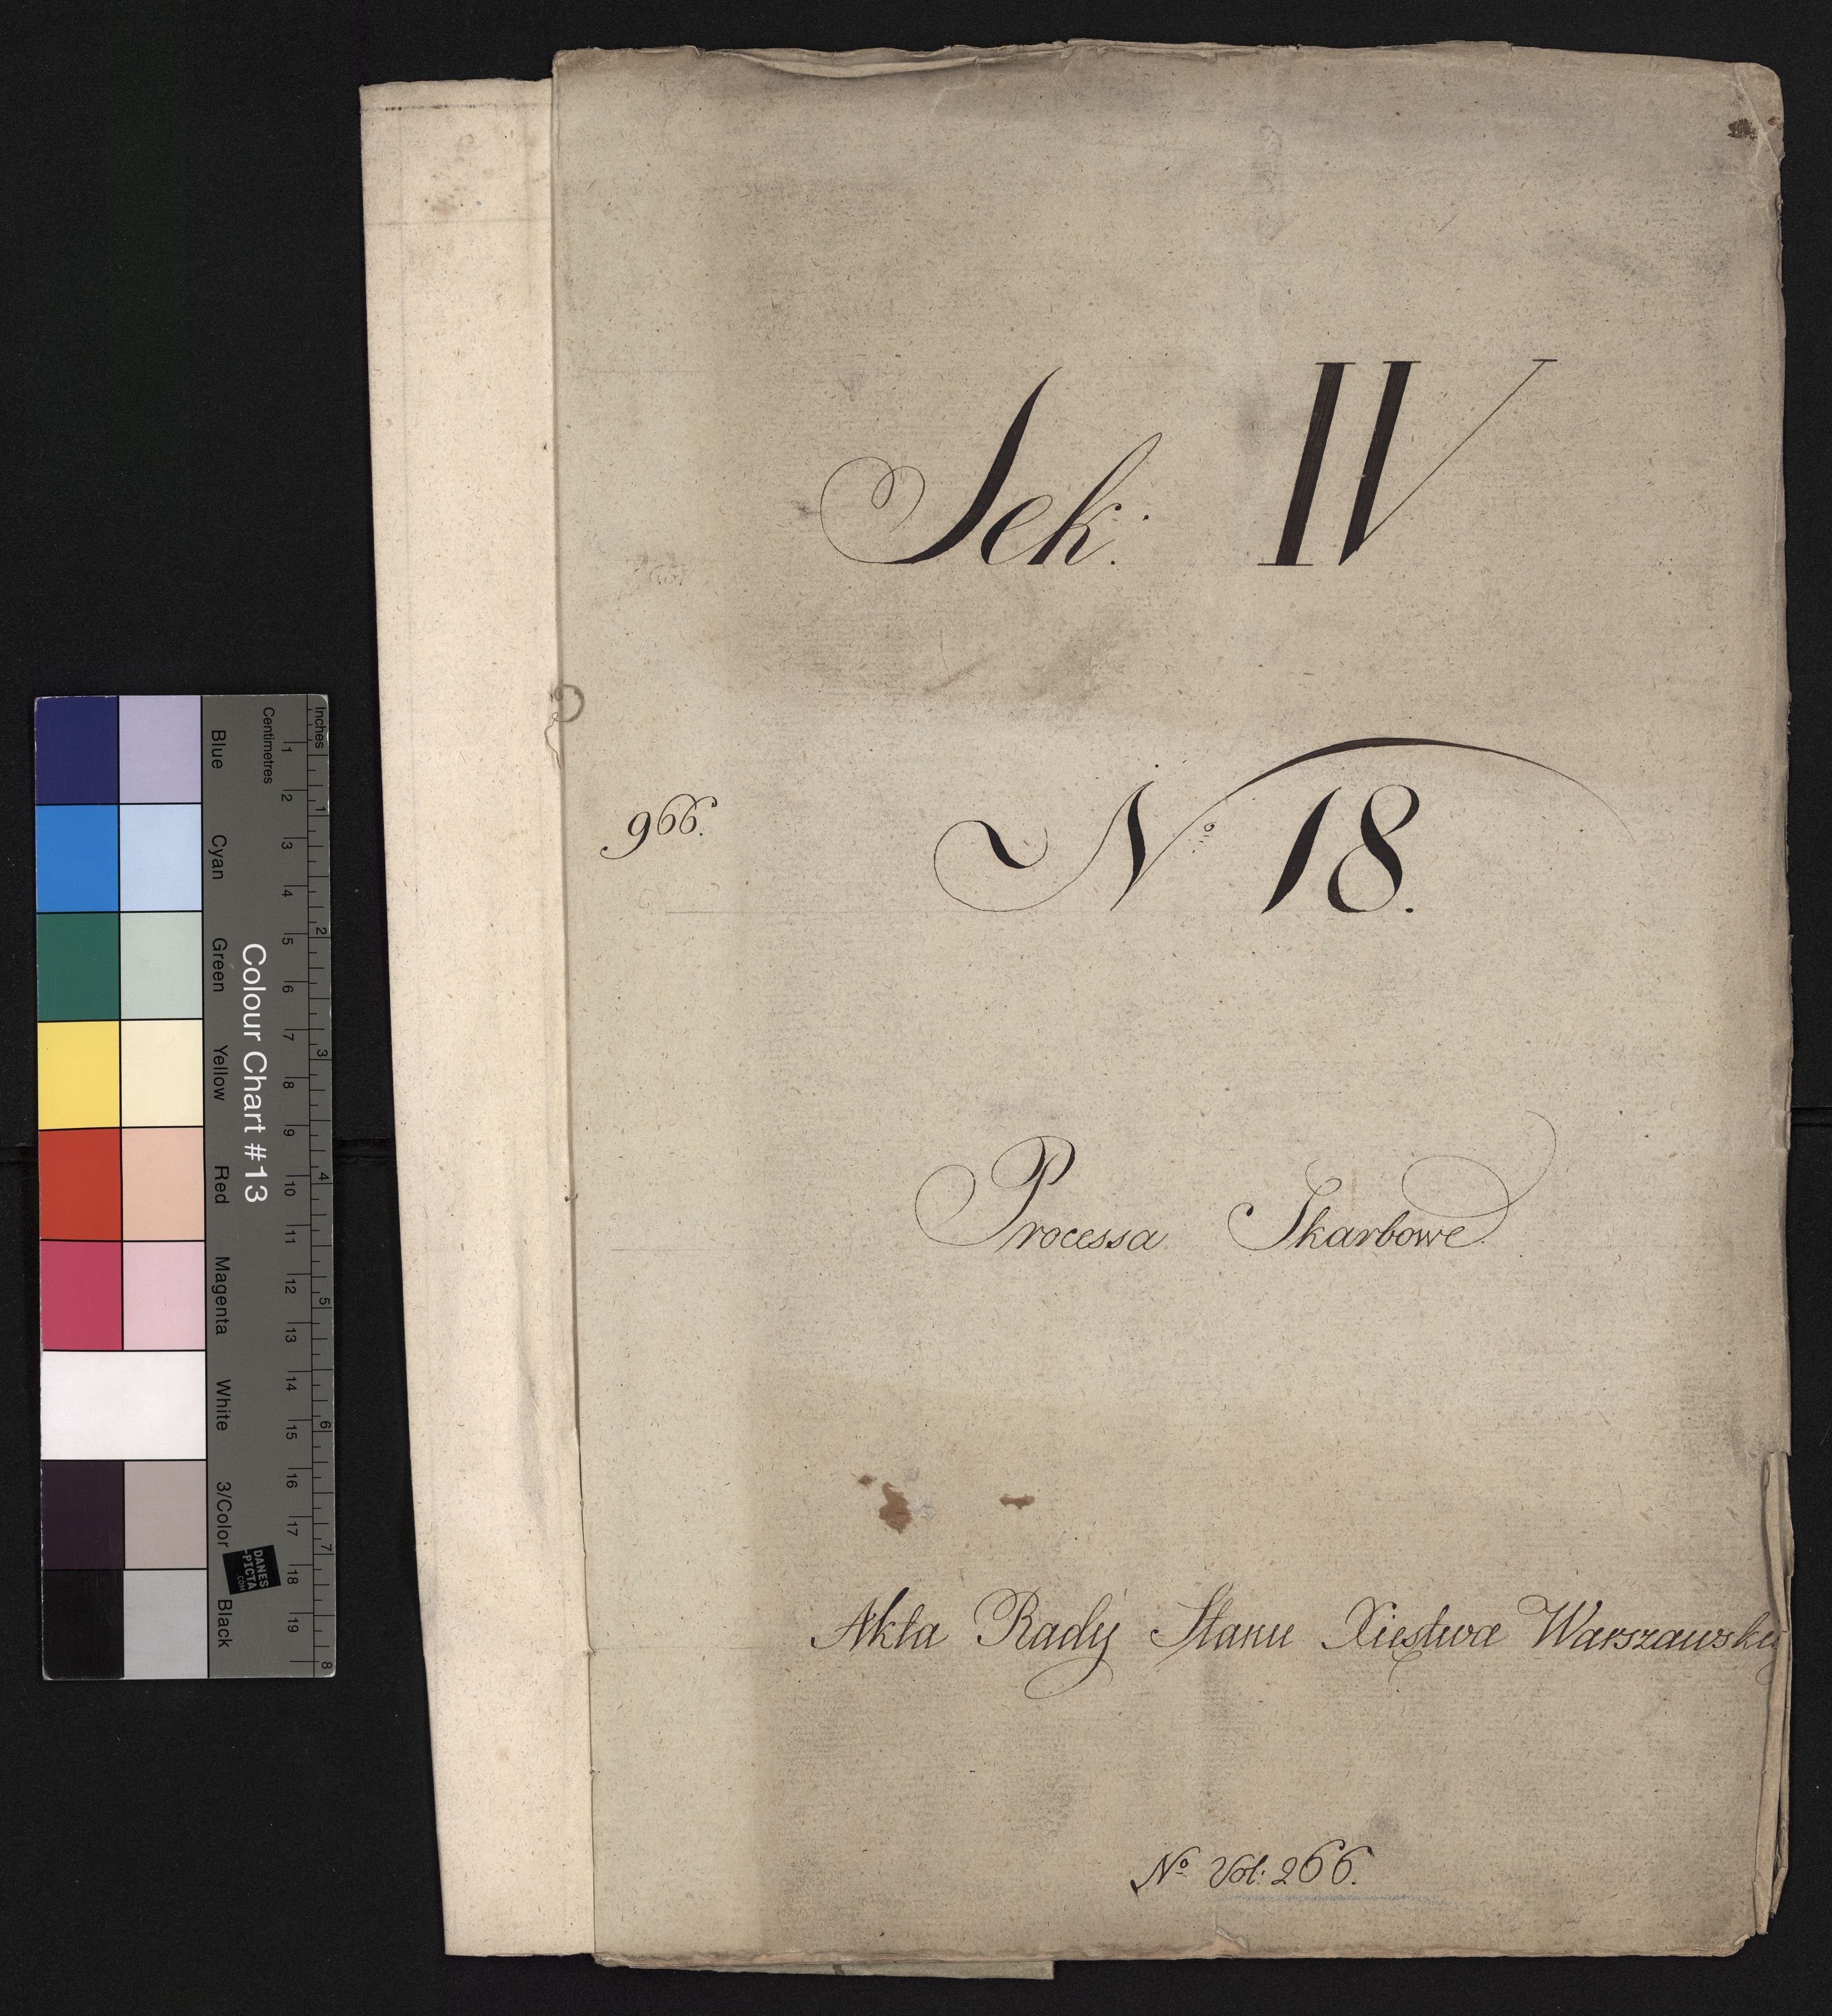 Sek: IV
966.
No 18.
Processa Skarbowe
Akta Rady Stanu Xięstwa Warszawskie
No Vol: 266.
Colour Chart #13
Blue Cyan Green Yellow Red Magenta White 3/Color Black
Centimetres 1 2 3 4 5 6 7 8 9 10 11 12 13 14 15 16 17 18 19
Inches 1 2 3 4 5 6 7 8
DANES
-PICTA
.COM